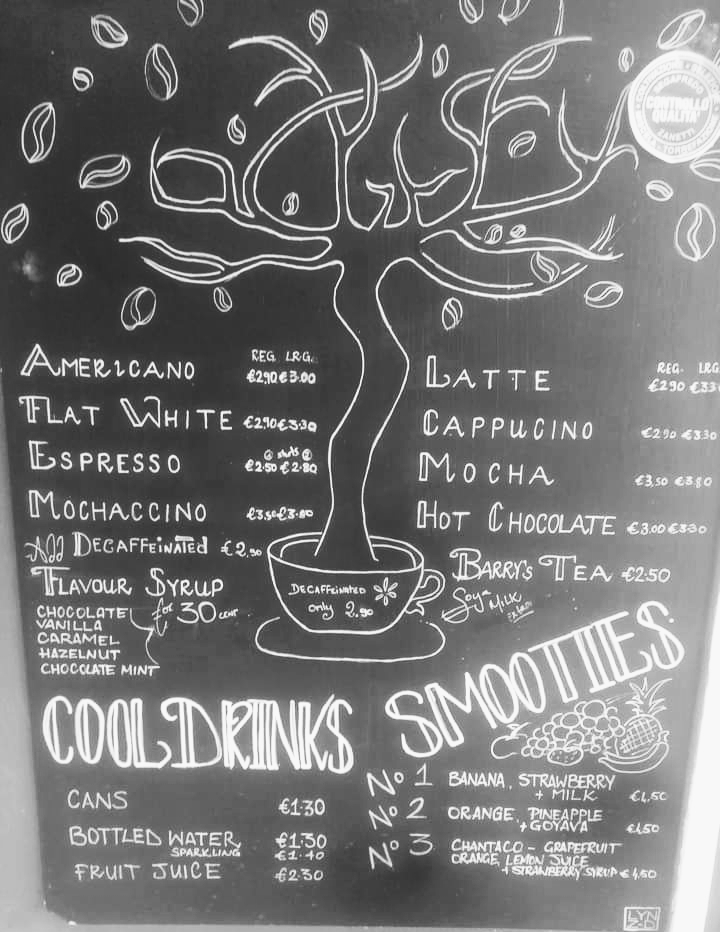 SEGAFREDO
CONTROLLO
QUALITA'
ZANETTI
REG. LRG.
AMERICANO €2,90 €3.00
FLAT WHITE €2,90 €3.30
ESPRESSO €2.50 €2.80
MOCHACCINO €3,50 €3.80
All DECAFFEiNATED €2,90
FLAVOUR SYRUP
CHOCOLATE for 30 cent
VANILLA
CARAMEL
HAZELNUT
CHOCOLATE MINT
REG. LRG
LATTE €2.90 €3.3
CAPPUCINO €2.90 €3.30
MOCHA €3,50 €3.80
HOT CHOCOLATE €3.00 €3.30
BARRY's TEA €2.50
Soya MILK
DECAFFEiNATED
only 2,90
COOL DRINKS
CANS €1.30
BOTTLED WATER €1.30
SPARKLING €1.40
FRUIT JUICE €2.30
SMOOTIIES
No 1 BANANA, STRAWBERRY
+ MILK €4,50
No 2 ORANGE, PINEAPPLE
+ GOYAVA €4,50
No 3 CHANTACO - GRAPEFRUIT
ORANGE, LEMON JUICE
+ STRAWBERRY SYRUP €4,50
LYN
Z-D